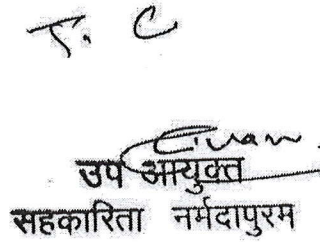 T. C
उप आयुक्त
सहकारिता नर्मदापुरम